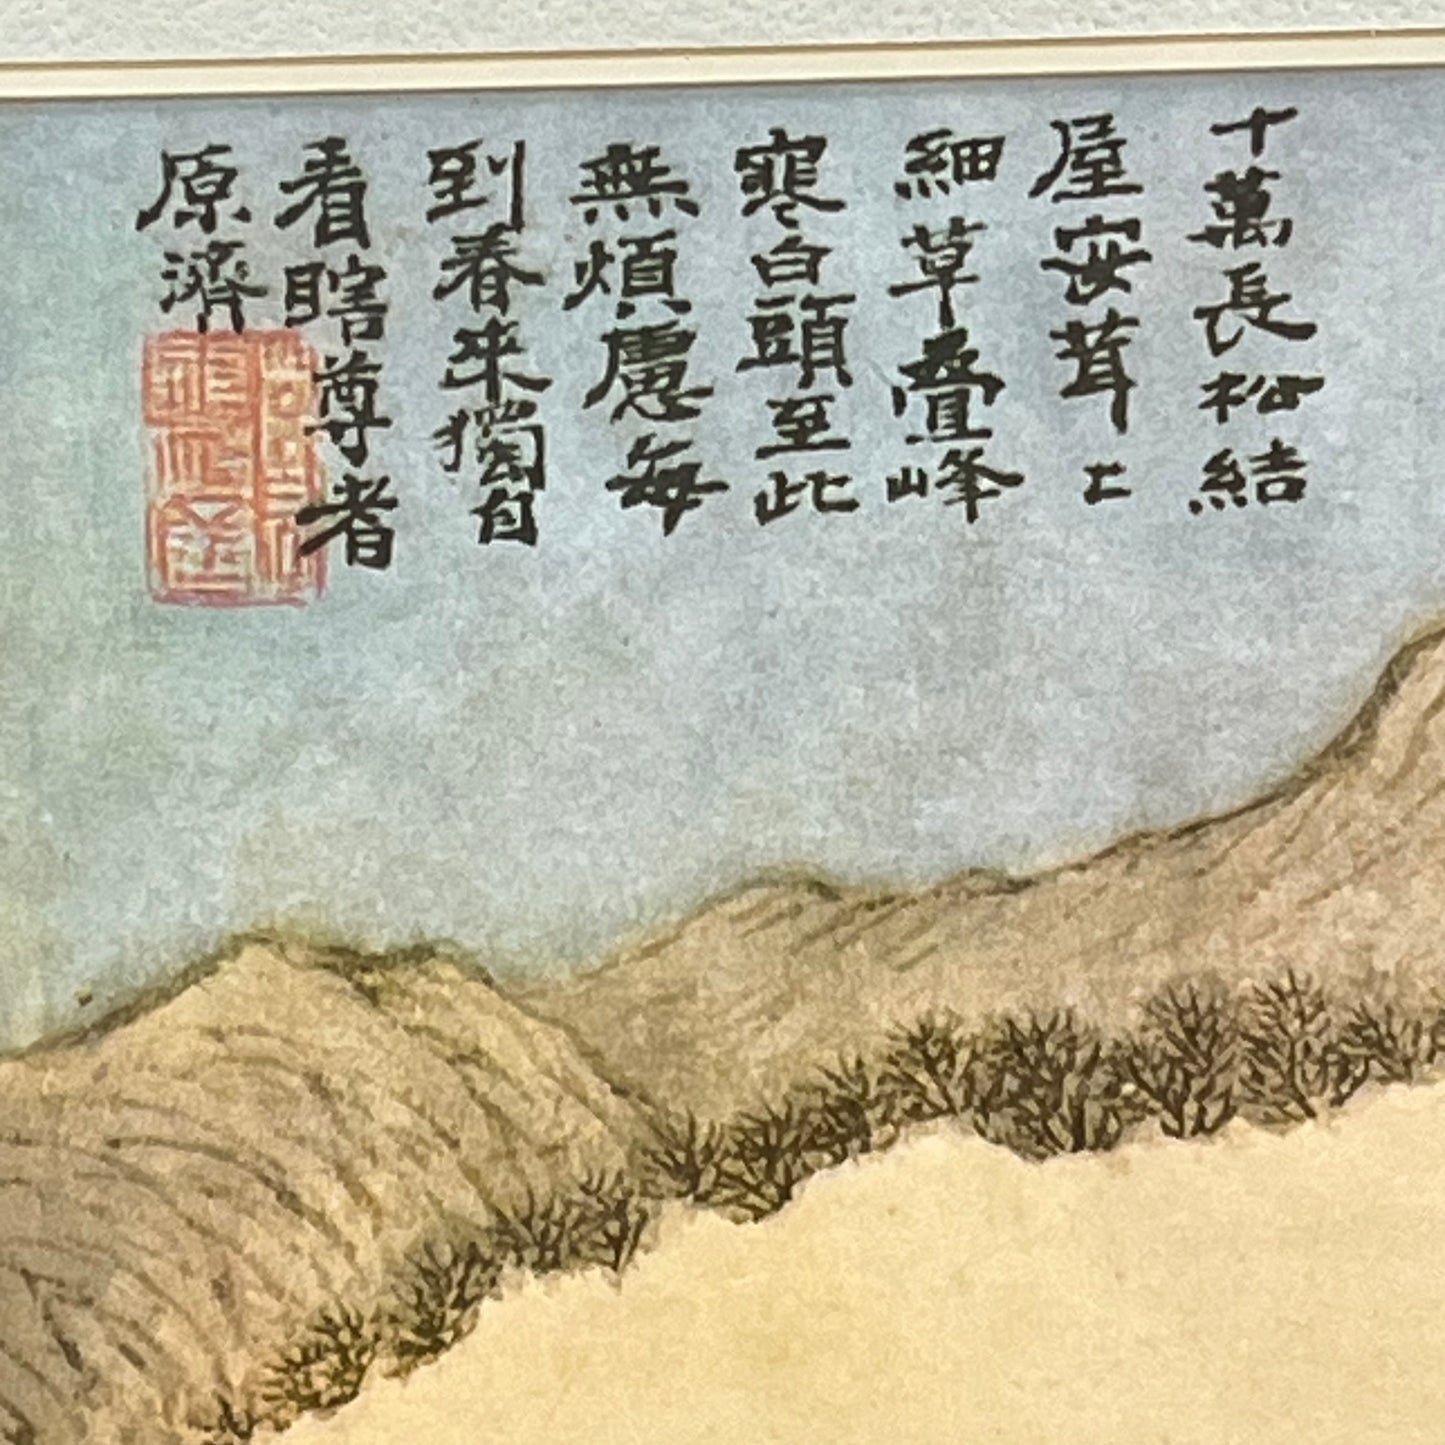 十萬長松結
屋安茸〻
細草疊峰
寒〻白頭至此
無煩慮每
到春來獨自
看瞎尊者
原濟